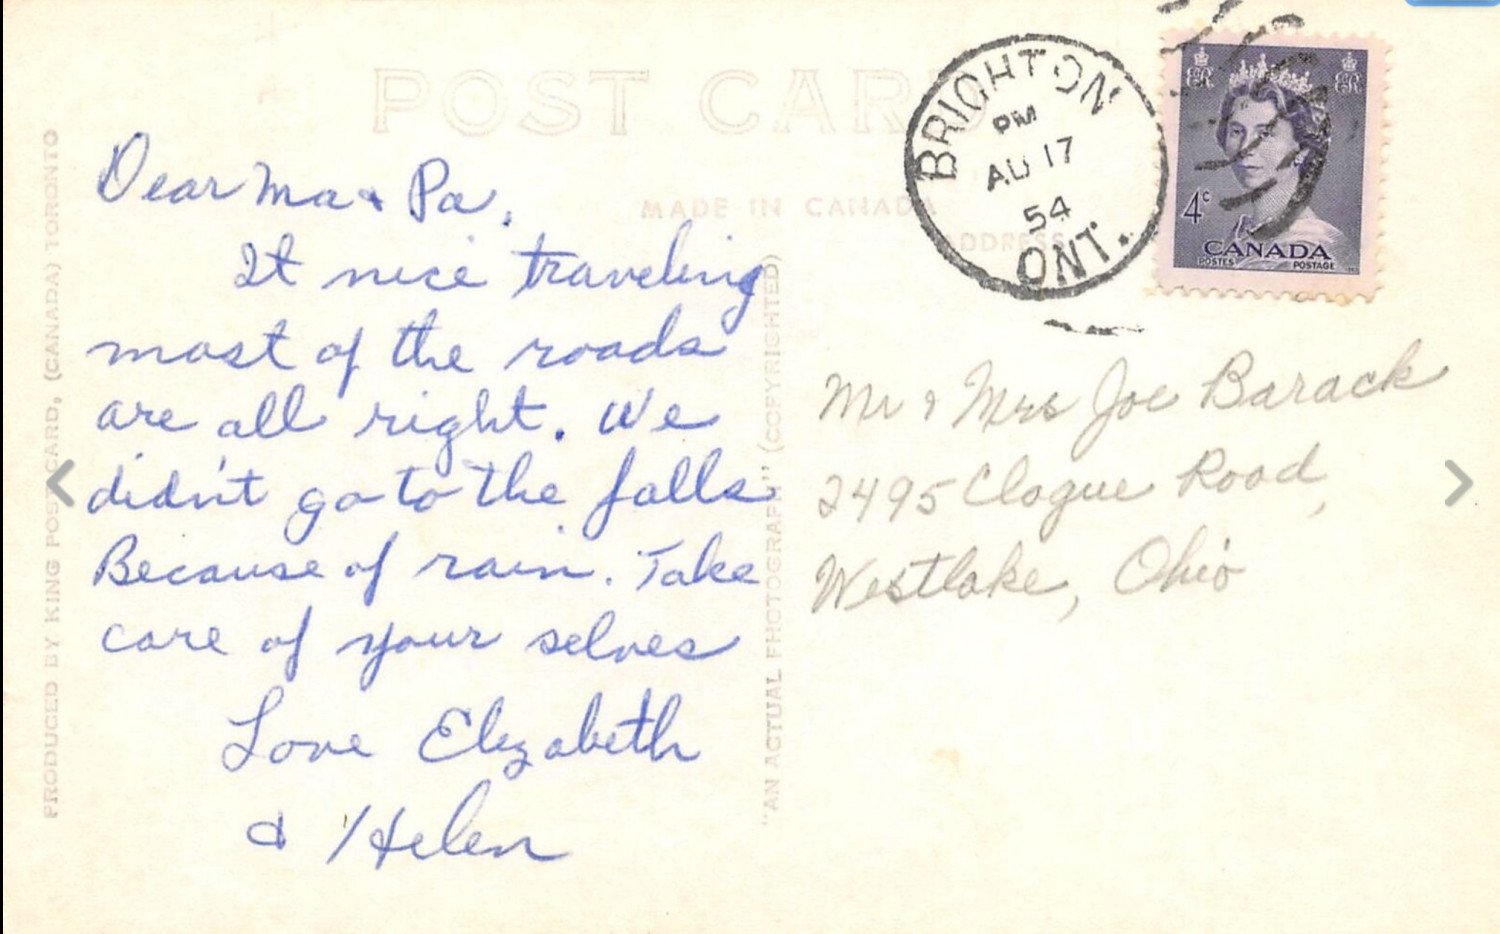 POST CARD
MADE IN CANADA
ADDRESS
BRIGHTON
PM
AU 17
54
ONT.
ER ER
4c
CANADA
POSTES POSTAGE
Dear Ma & Pa.
It nice traveling
most of the roads
are all right. We
didn't go to the falls
Because of rain. Take
care of your selves
Love Elizabeth
& Helen
Mr & Mrs Joe Barack
2495 Clague Road,
Westlake, Ohio
PRODUCED BY KING POST CARD, (CANADA) TORONTO
"AN ACTUAL PHOTOGRAPH" (COPYRIGHTED)